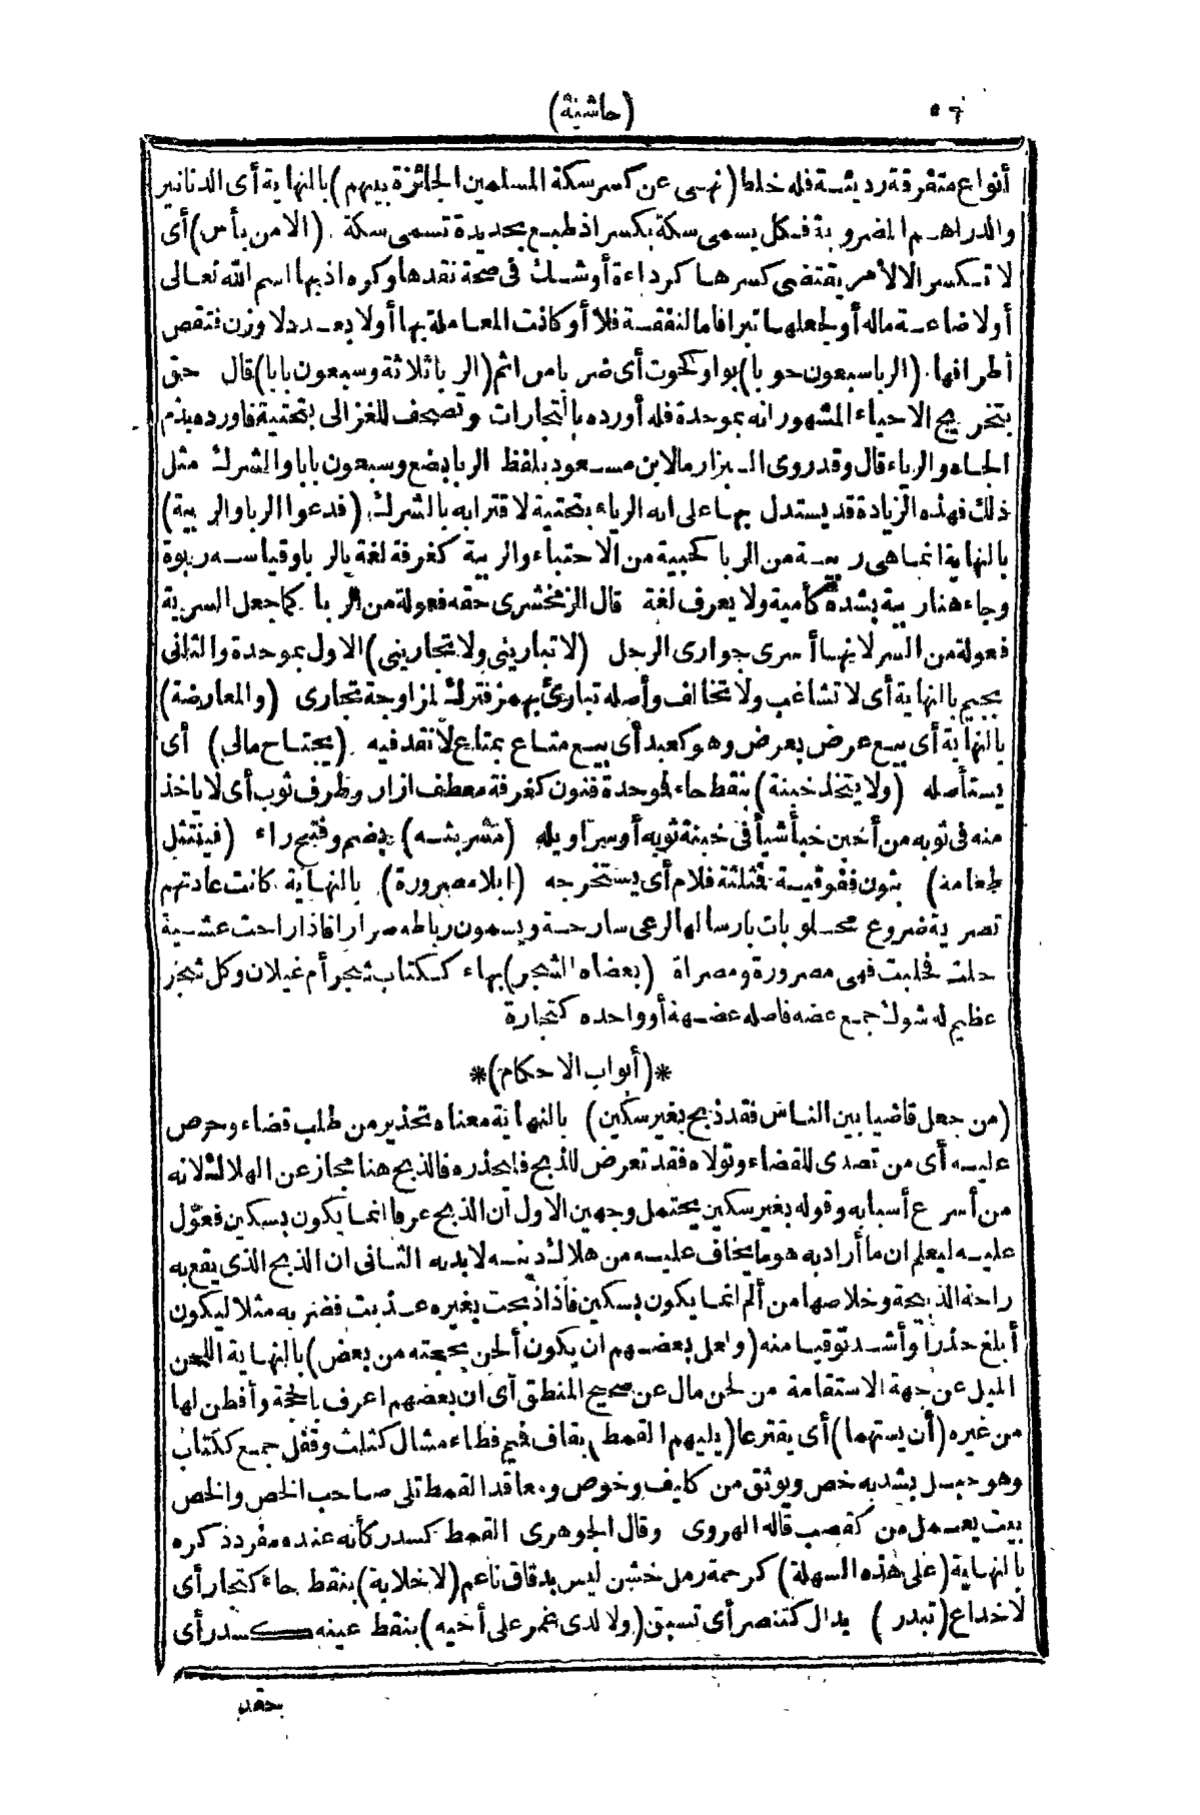 ٥٦ (حاشية)
أنواع متفرقة رديئة فله خلط (نهى عن كسر سكة المسلمين الجائزة بينهم) بالنهاية أى الدنانير
والدراهم المضروبة فكل يسمى سكة بكسر اذ طبع بحديدة تسمى سكة . (الا من بأس) أى
لا تكسر الا لأمر يقتضى كسرها كرداءة أوشك فى صحة نقدها وكره اذ بها اسم الله تعالى
أولاضاعة ماله أولجعلها تبرا فاما لنفقة فلا أو كانت المعاملة بها أولا بعدد لا وزن فتقص
أطرافها . (الربا سبعون حوبا) بواو كحوت أى ضربا من اثم (الربا ثلاثة وسبعون بابا) قال حق
بتخريج الاحياء المشهور انه بموحدة فله أورده بالتجارات وتصحف للغزالى بتحتية فاورده بذم
الجاه والرياء قال وقد روى البزار مالابن مسعود بلفظ الربا بضع وسبعون بابا والشرك مثل
ذلك فهذه الزيادة قد يستدل بها على انه الرياء بتحتية لاقترانه بالشرك . (فدعوا الربا والريبة)
بالنهاية انما هى ربية من الربا كحبية من الاحتباء والربية كغرفة لغة بالربا وقياسه ربوة
وجاء هنا ربية بشدة كأمية ولا يعرف لغة قال الزمخشرى حقه فعولة من الربا كما جعل السرية
فعولة من السر لانها أسرى جوارى الرجل (لا تبارينى ولا تجارينى) الاول بموحدة والثانى
بجيم بالنهاية أى لا تشاغب ولا تخالف وأصله تبارئ بهمز فترك لمزاوجة تجارى (والمعارضة)
بالنهاية أى بيع عرض بعرض وهو كعبد أى بيع متاع بمتاع لا نقد فيه . (يجتاح مالى) أى
يستأصله (ولا يتخذ خبنة) بنقط خاء فموحدة فنون كغرفة معطف ازار وطرف ثوب أى لا يأخذ
منه فى ثوبه من أخبن خبأ شيأ فى خبنة ثوبه أو سراويله (مشربته) بضم وفتح راء (فينتثل
طعامة) بنون ففوقية فثلثة فلام أى يستخرجه (ابلا مصرورة) بالنهاية كانت عادتهم
تصرية ضروع محلوبات بارسالها لرعى سارحة ويسمون رباطه صرارا فاذا راحت عشية
حلت فحلبت فهى مصرورة ومصراة (بعضاه الشجر) بهاء ككتاب شجر أم غيلان وكل شجر
عظيم له شوك جمع عضه فاصله عضهة أو واحده كتجارة
*(أبواب الاحكام)*
(من جعل قاضيا بين الناس فقد ذبح بغير سكين) بالنهاية معناه تحذير من طلب قضاء وحرص
عليه أى من تصدى للقضاء وتولاه فقد تعرض للذبح فليحذره فالذبح هنا مجاز عن الهلاك لانه
من أسرع أسبابه وقوله بغير سكين يحتمل وجهين الاول ان الذبح عرفا انما يكون بسكين فعوّل
عليه ليعلم ان ما أراد به هو ما يخاف عليه من هلاك دينه لا بدنه الثانى ان الذبح الذى يقع به
راحة الذبيحة وخلاصها من ألم انما يكون بسكين فاذا ذبحت بغيره عذبت فضرب به مثلا ليكون
أبلغ حذرا وأشد توقيا منه (ولعل بعضهم ان يكون ألحن بحجته من بعض) بالنهاية اللحن
الميل عن جهة الاستقامة من لحن مال عن صحيح المنطق أى ان بعضهم اعرف بالحجة وأفطن لها
من غيره (أن يستهما) أى يقترعا (يليهم القمط) بقاف فميم فطاء مشال كتلث وقفل جمع ككتاب
وهو حبل يشد به خص ويوثق من كليف وخوص ومعاقد القمط تلى صاحب الخص والخص
بيت يعمل من كقصب قاله الهروى وقال الجوهرى القمط كسدر كأنه عنده مفرد ذكره
بالنهاية (على هذه السهلة) كرحمة رمل خشن ليس بدقاق ناعم (لا خلابة) بنقط خاء كتجار أى
لاخداع (تبدر ) بدال كتنصر أى تسبق (ولا لذى غمر على أخيه) بنقط عينه كسدر أى
بحقد